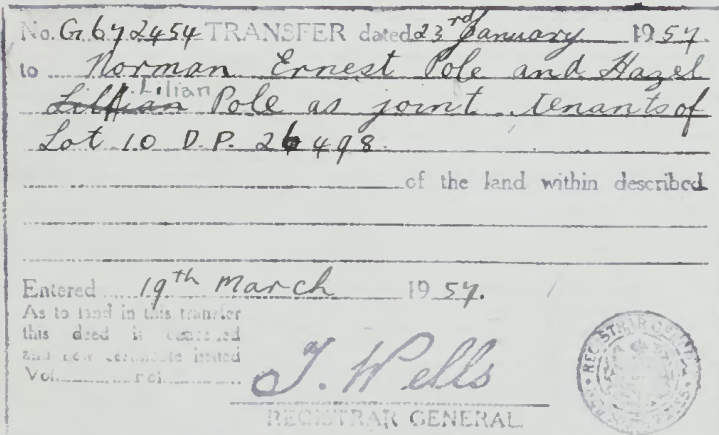 No. G672454 TRANSFER dated 23rd January 1957
to Norman Ernest Pole and Hazel
Lilian
Lillian Pole as joint tenants of
Lot 10 D.P. 26498
of the land within described
Entered 19th March 1957.
As to land in this transfer
this deed is cancelled
and new certificate issued
Vol. Fol.
J. Wells
REGISTRAR GENERAL
REGISTRAR GENERAL